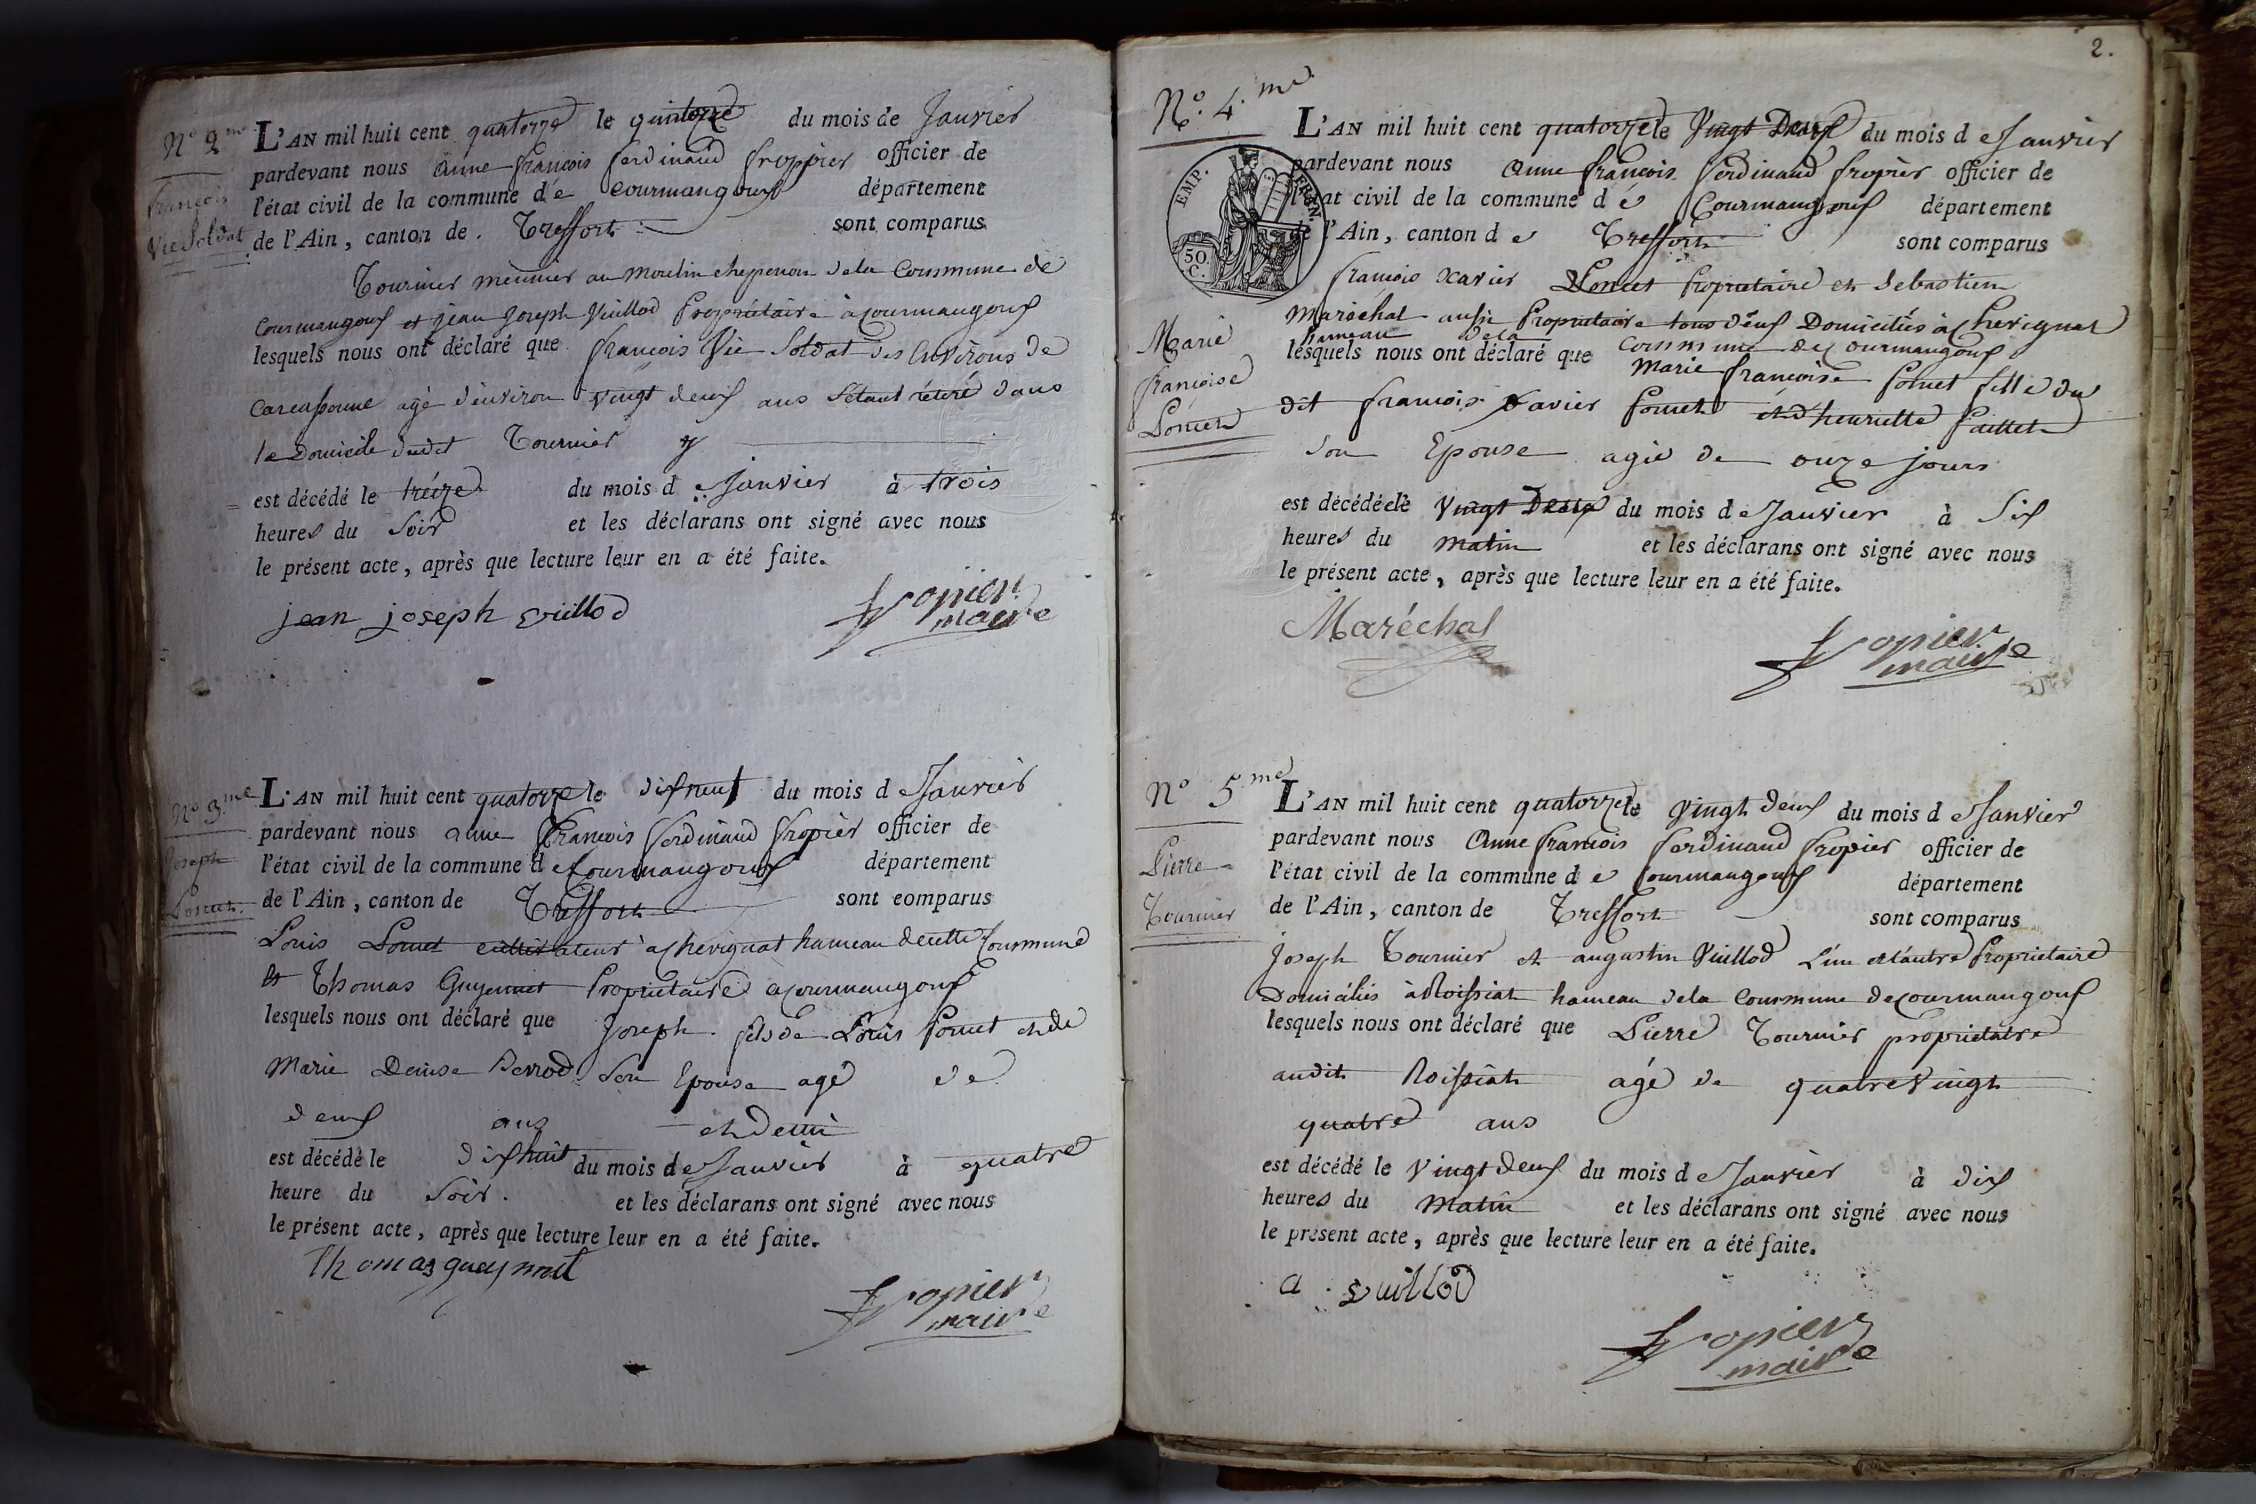 N.º 2.me
François
Vié Soldat
L'AN mil huit cent quatorze le quinteze du mois de Janvier
pardevant nous anne françois ferdinand froppier officier de
l'état civil de la commune de Courmangoux département
de l'Ain, canton de Treffort sont comparus
Tournier meunier au moulin chepenou dela Commune de
Courmangoux et jean Joseph Vuillod Propriétaire à Courmangoux
lesquels nous ont déclaré que françois Vié Soldat des Environs de
Carcassonne agé d'environ vingt deux ans s'étant rétiré dans
le Domicile dudit Tournier y
est décédé le treize du mois de Janvier à trois
heures du Soir et les déclarans ont signé avec nous
le présent acte, après que lecture leur en a été faite.
jean joseph vuillod
fropier
maire
N.º 3.me
Joseph
Poncet
L'AN mil huit cent quatorze le dixneuf du mois de Janvier
pardevant nous anne françois ferdinand fropier officier de
l'état civil de la commune de Courmangoux département
de l'Ain, canton de Treffort sont comparus
Louis Poncet cultivateur à chevignat hameau decette Commune
et Thomas Guyennet Propriétaire a Courmangoux
lesquels nous ont déclaré que Joseph fils de Louis Poncet et de
Marie Denise Perrod Son Epouse agé de
deux ans et demi
est décédé le dixhuit du mois de Janvier à quatre
heure du Soir. et les déclarans ont signé avec nous
le présent acte, après que lecture leur en a été faite.
Thomas
fropier
maire
2.
N.º 4.me
EMP. FRAN.
50.
C.
Marie
françoise
Poncet
L'AN mil huit cent quatorze le Vingt Deux du mois de Janvier
pardevant nous Anne françois ferdinand fropier officier de
l'état civil de la commune de Courmangoux département
de l'Ain, canton de Treffort sont comparus
françois xavier Poncet Propriétaire et Sebastien
Maréchal aussi Propriétaire tous deux Domiciliés à Chevignat
hameau dela Commune de Courmangoux
lesquels nous ont déclaré que Marie françoise Poncet fille du
dit françois Xavier Poncet et d'henriette Paillet
Son Epouse agée de onze jours
est décédée le Vingt Deux du mois de Janvier à Six
heures du matin et les déclarans ont signé avec nous
le présent acte, après que lecture leur en a été faite.
Maréchal
fropier
maire
N.º 5.me
Pierre
Tournier
L'AN mil huit cent quatorze le vingt deux du mois de Janvier
pardevant nous Anne françois ferdinand fropier officier de
l'état civil de la commune de Courmangoux département
de l'Ain, canton de Treffort sont comparus
Joseph Tournier et augustin Vuillod L'un et l'autre Propriétaire
Domiciliés à Roissiat hameau dela Commune de Courmangoux
lesquels nous ont déclaré que Pierre Tournier propriétaire
audit Roissiat agé de quatre Vingt
quatre ans
est décédé le vingt deux du mois de Janvier à dix
heures du matin et les déclarans ont signé avec nous
le présent acte, après que lecture leur en a été faite.
a. vuillod
fropier
maire